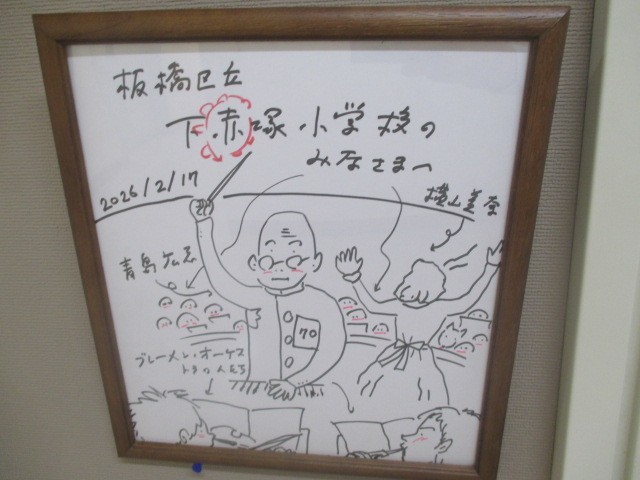 板橋区立
下赤塚小学校の
みなさまへ
2026/2/17
横山美奈
青島広志
70
ブレーメン・オーケス
トラの人たち